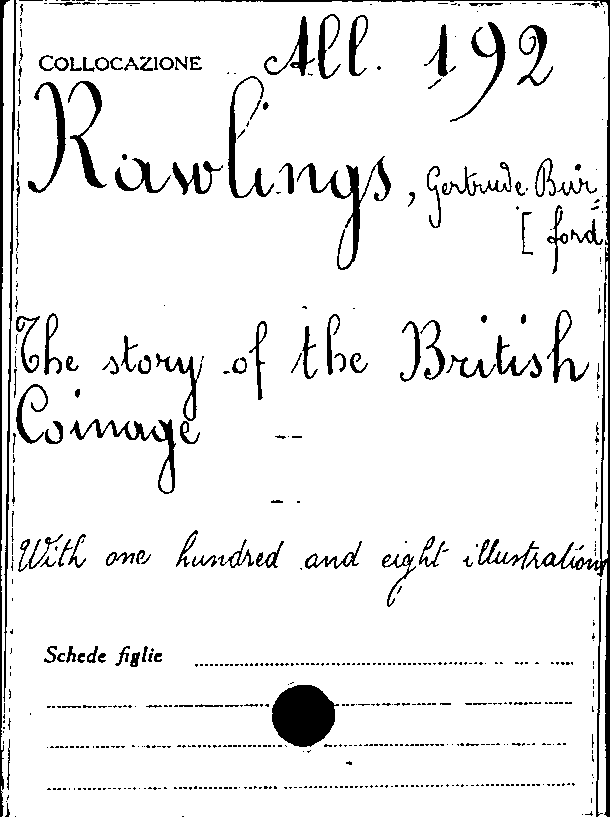 COLLOCAZIONE All. 192
Rawlings, Gertrude Bur=
[ford
The story of the British
Coinage
With one hundred and eight illustrations
Schede figlie